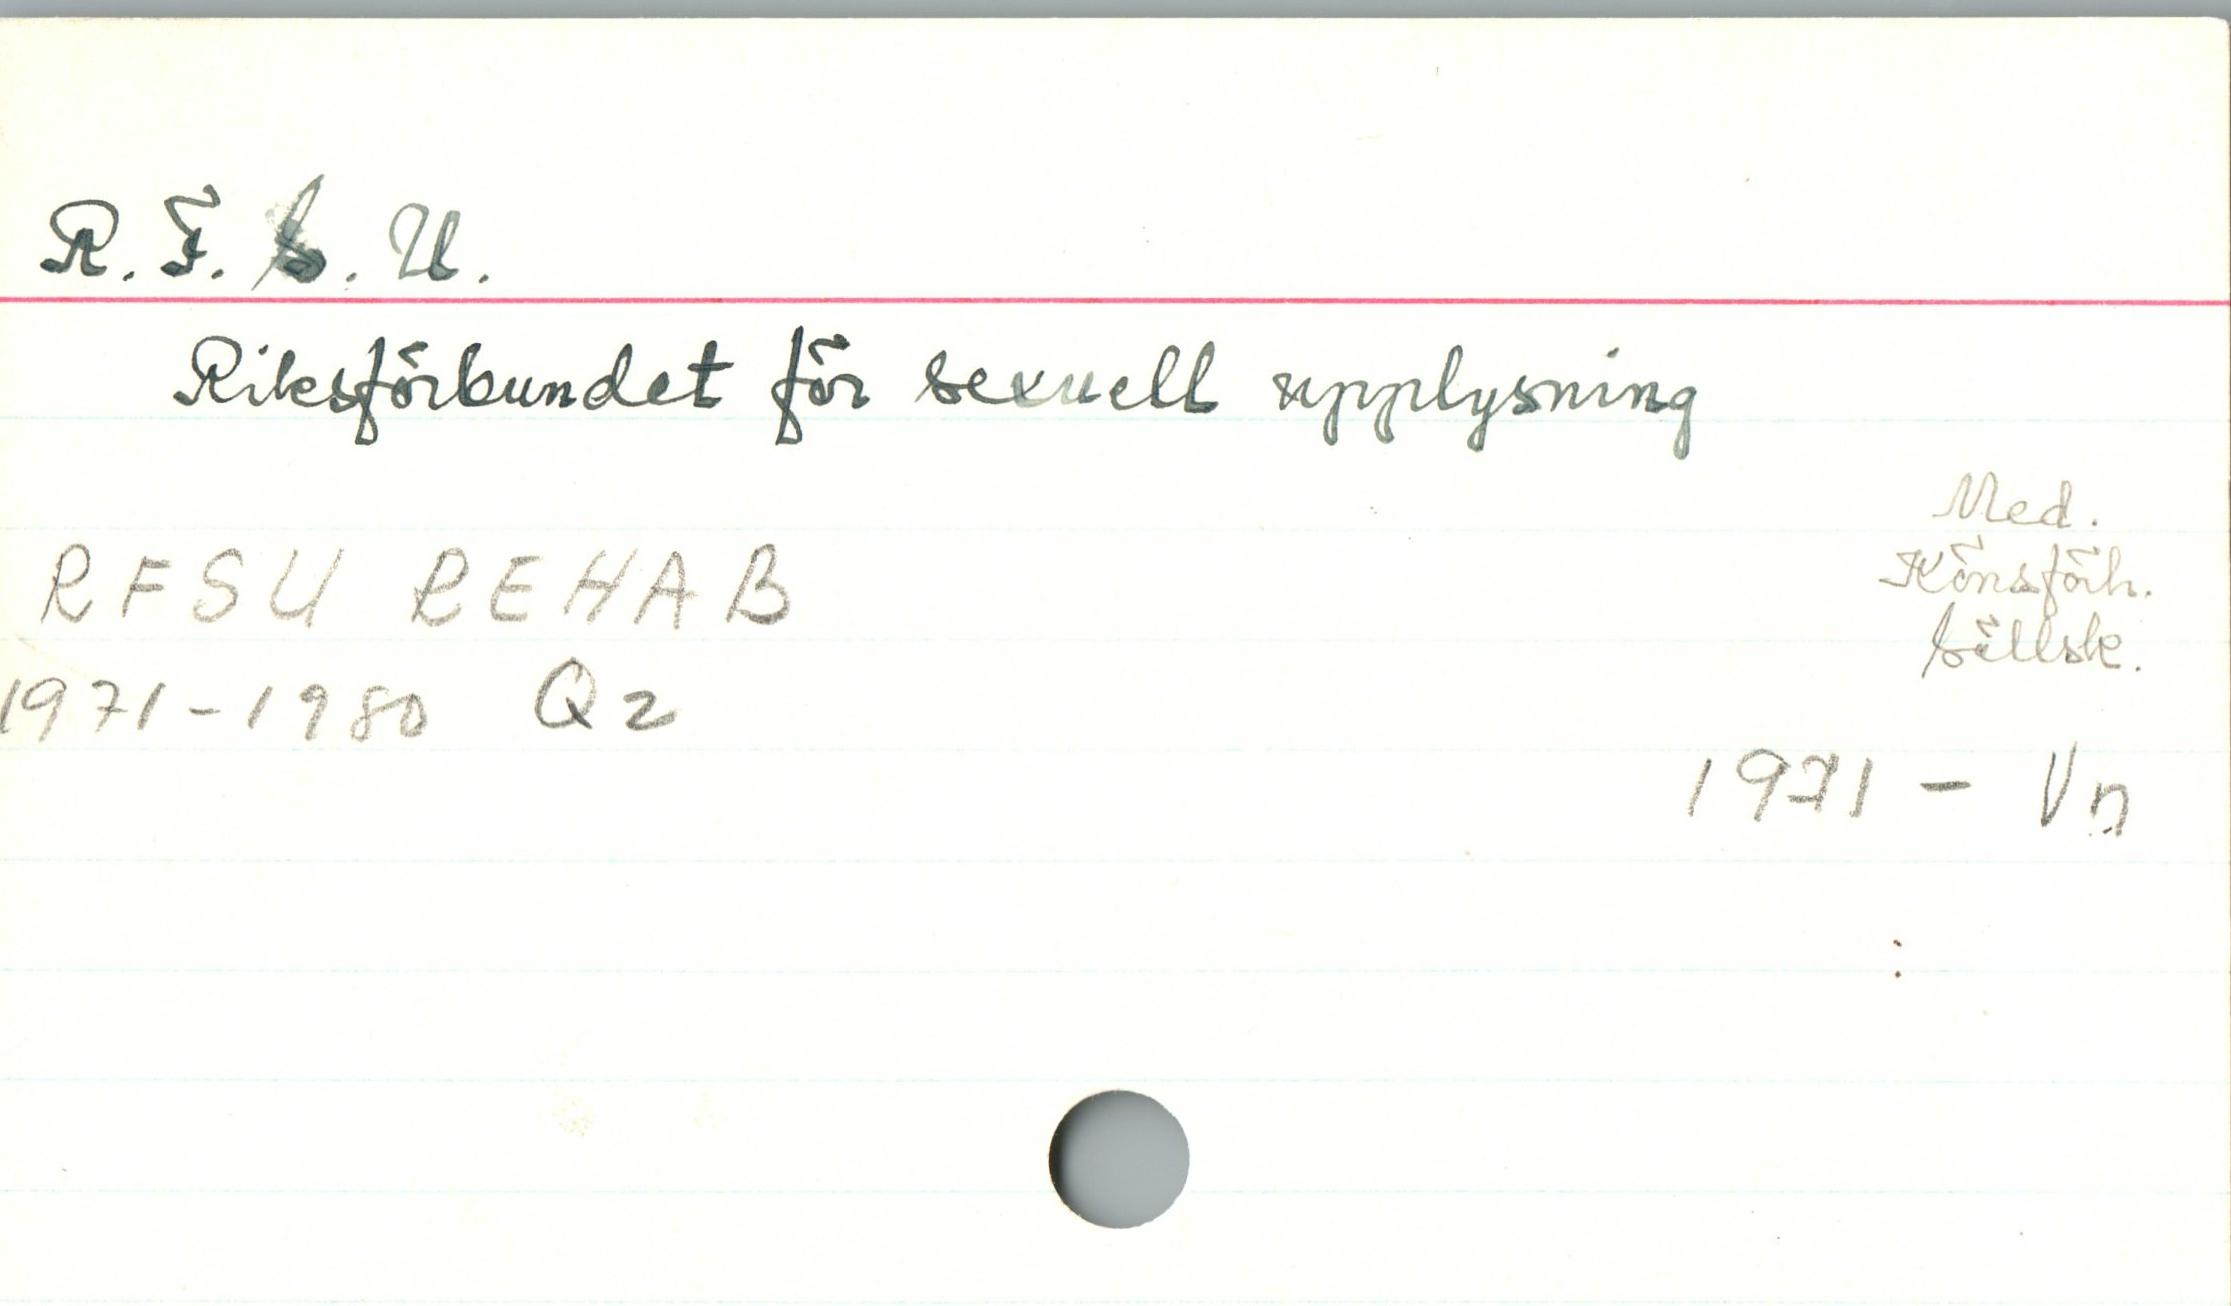 R. F. S. U.
Riksförbundet för sexuell upplysning
Med.
Könsförh.
Sällsk.
RFSU REHAB
1971-1980 Qz
1971 - Vn